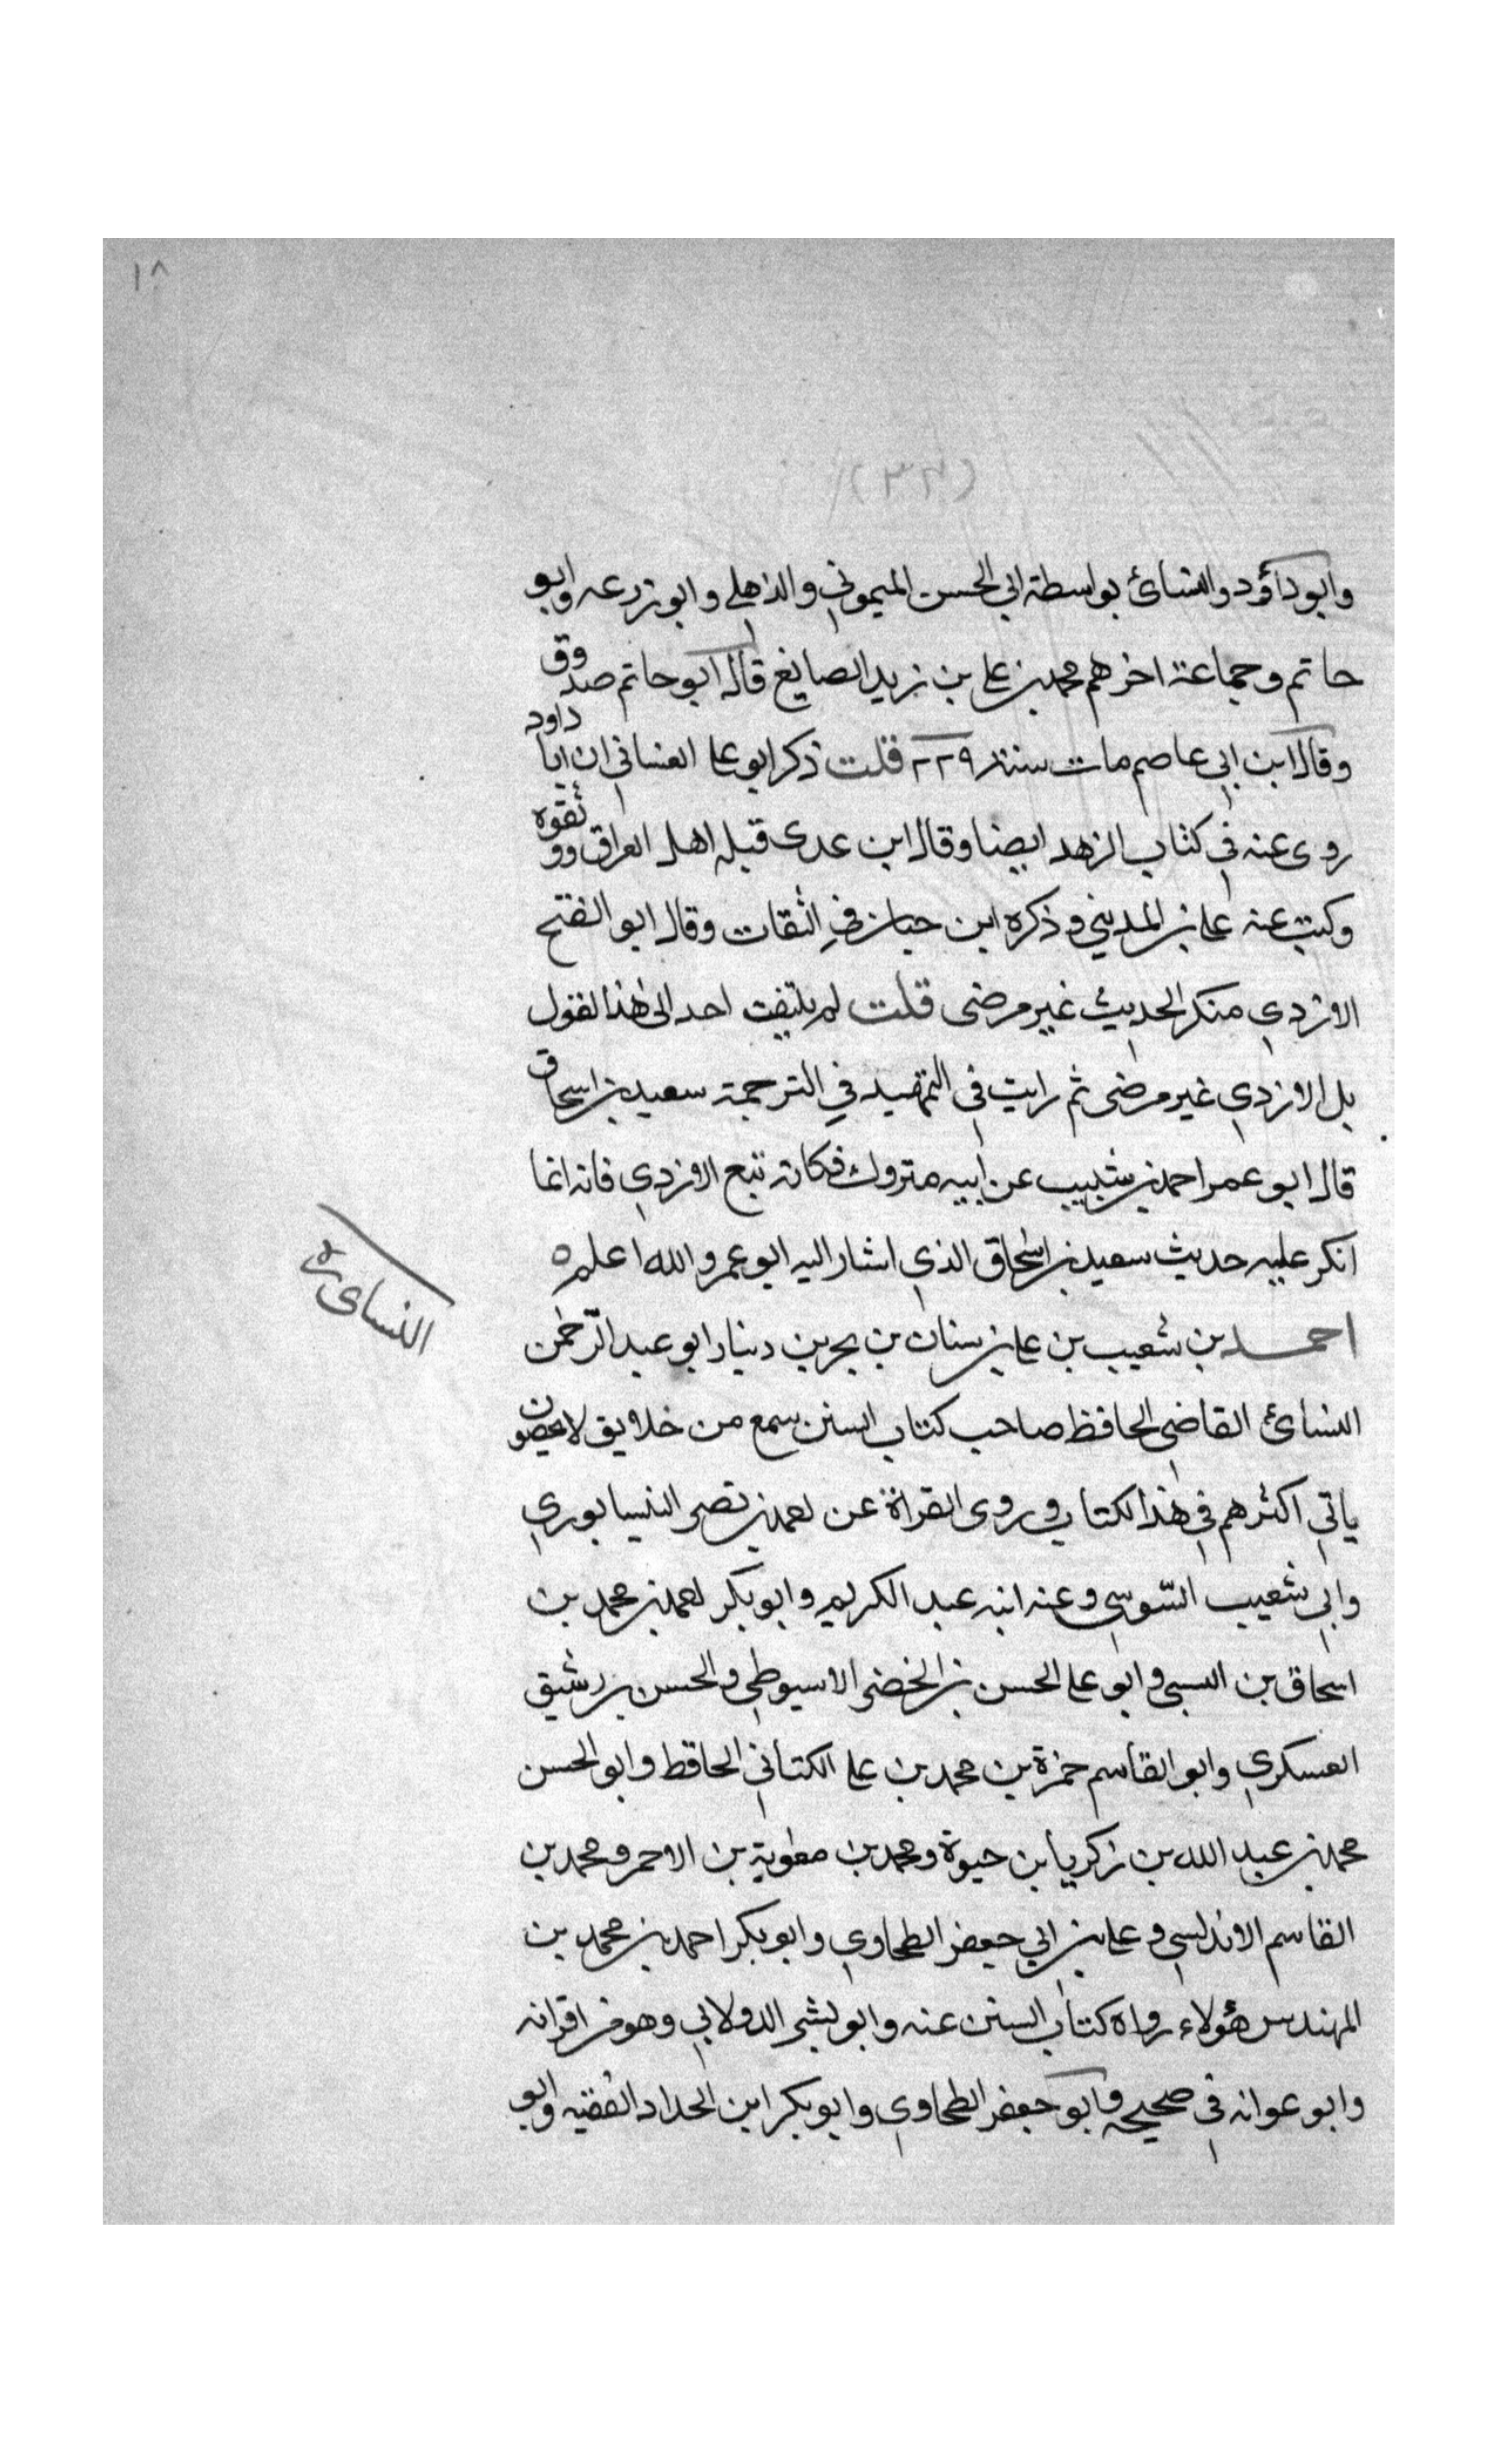 ١٨
(٣٢)
وابو داؤد والنسائ بواسطة ابي الحسن الميموني والذهلي وابو زرعه وابو
حاتم وجماعة اخرهم محمد بن علي بن زيد الصايغ قال ابو حاتم صدوق
وقال ابن ابي عاصم مات سنة ٢٢٩ قلت ذكر ابو علي الغساني ان ابا داود
روى عنه في كتاب الزهد ايضا وقال ابن عدى قبله اهل العراق ووثقوه
وكتب عنه علي بن المديني وذكره ابن حبان في الثقات وقال ابو الفتح
الازدي منكر الحديث غير مرضى قلت لم يلتفت احد الى هذا لقول
بل الازدي غير مرضى ثم رايت في التمهيد في الترجمة سعيد بن اسحاق
قال ابو عمر احمد بن شبيب عن ابيه متروك فكانه تبع الازدي فانه انما
انكر عليه حديث سعيد بن اسحاق الذي اشار اليه ابو عمر والله اعلم ه
النساىء
احمد بن شعيب بن علي بن سنان بن بحر بن دينار ابو عبد الرحمن
النسائ القاضي الحافظ صاحب كتاب السنن سمع من خلايق لا يحصون
ياتي اكثرهم في هذا لكتاب وروى القراة عن احمد بن نصر النيسابوري
وابي شعيب السّوسي وعنه ابنه عبد الكريم وابو بكر احمد بن محمد بن
اسحاق بن السنى وابو علي الحسن بن الخضر الاسيوطي والحسن بن رشيق
العسكري وابو القاسم حمزة بن محمد بن علي الكناني الحافظ وابو الحسن
محمد بن عبد الله بن زكريا بن حيوة ومحمد بن معوية بن الاحمر ومحمد بن
القاسم الاندلسي وعلي بن ابي جعفر الطحاوي وابو بكر احمد بن محمد بن
المهندس هؤلاء رواه كتاب السنن عنه وابو بشر الدولابي وهو من اقرانه
وابو عوانه في صحيحه وابو جعفر الطحاوي وابو بكر ابن الحداد الفقيه وابو